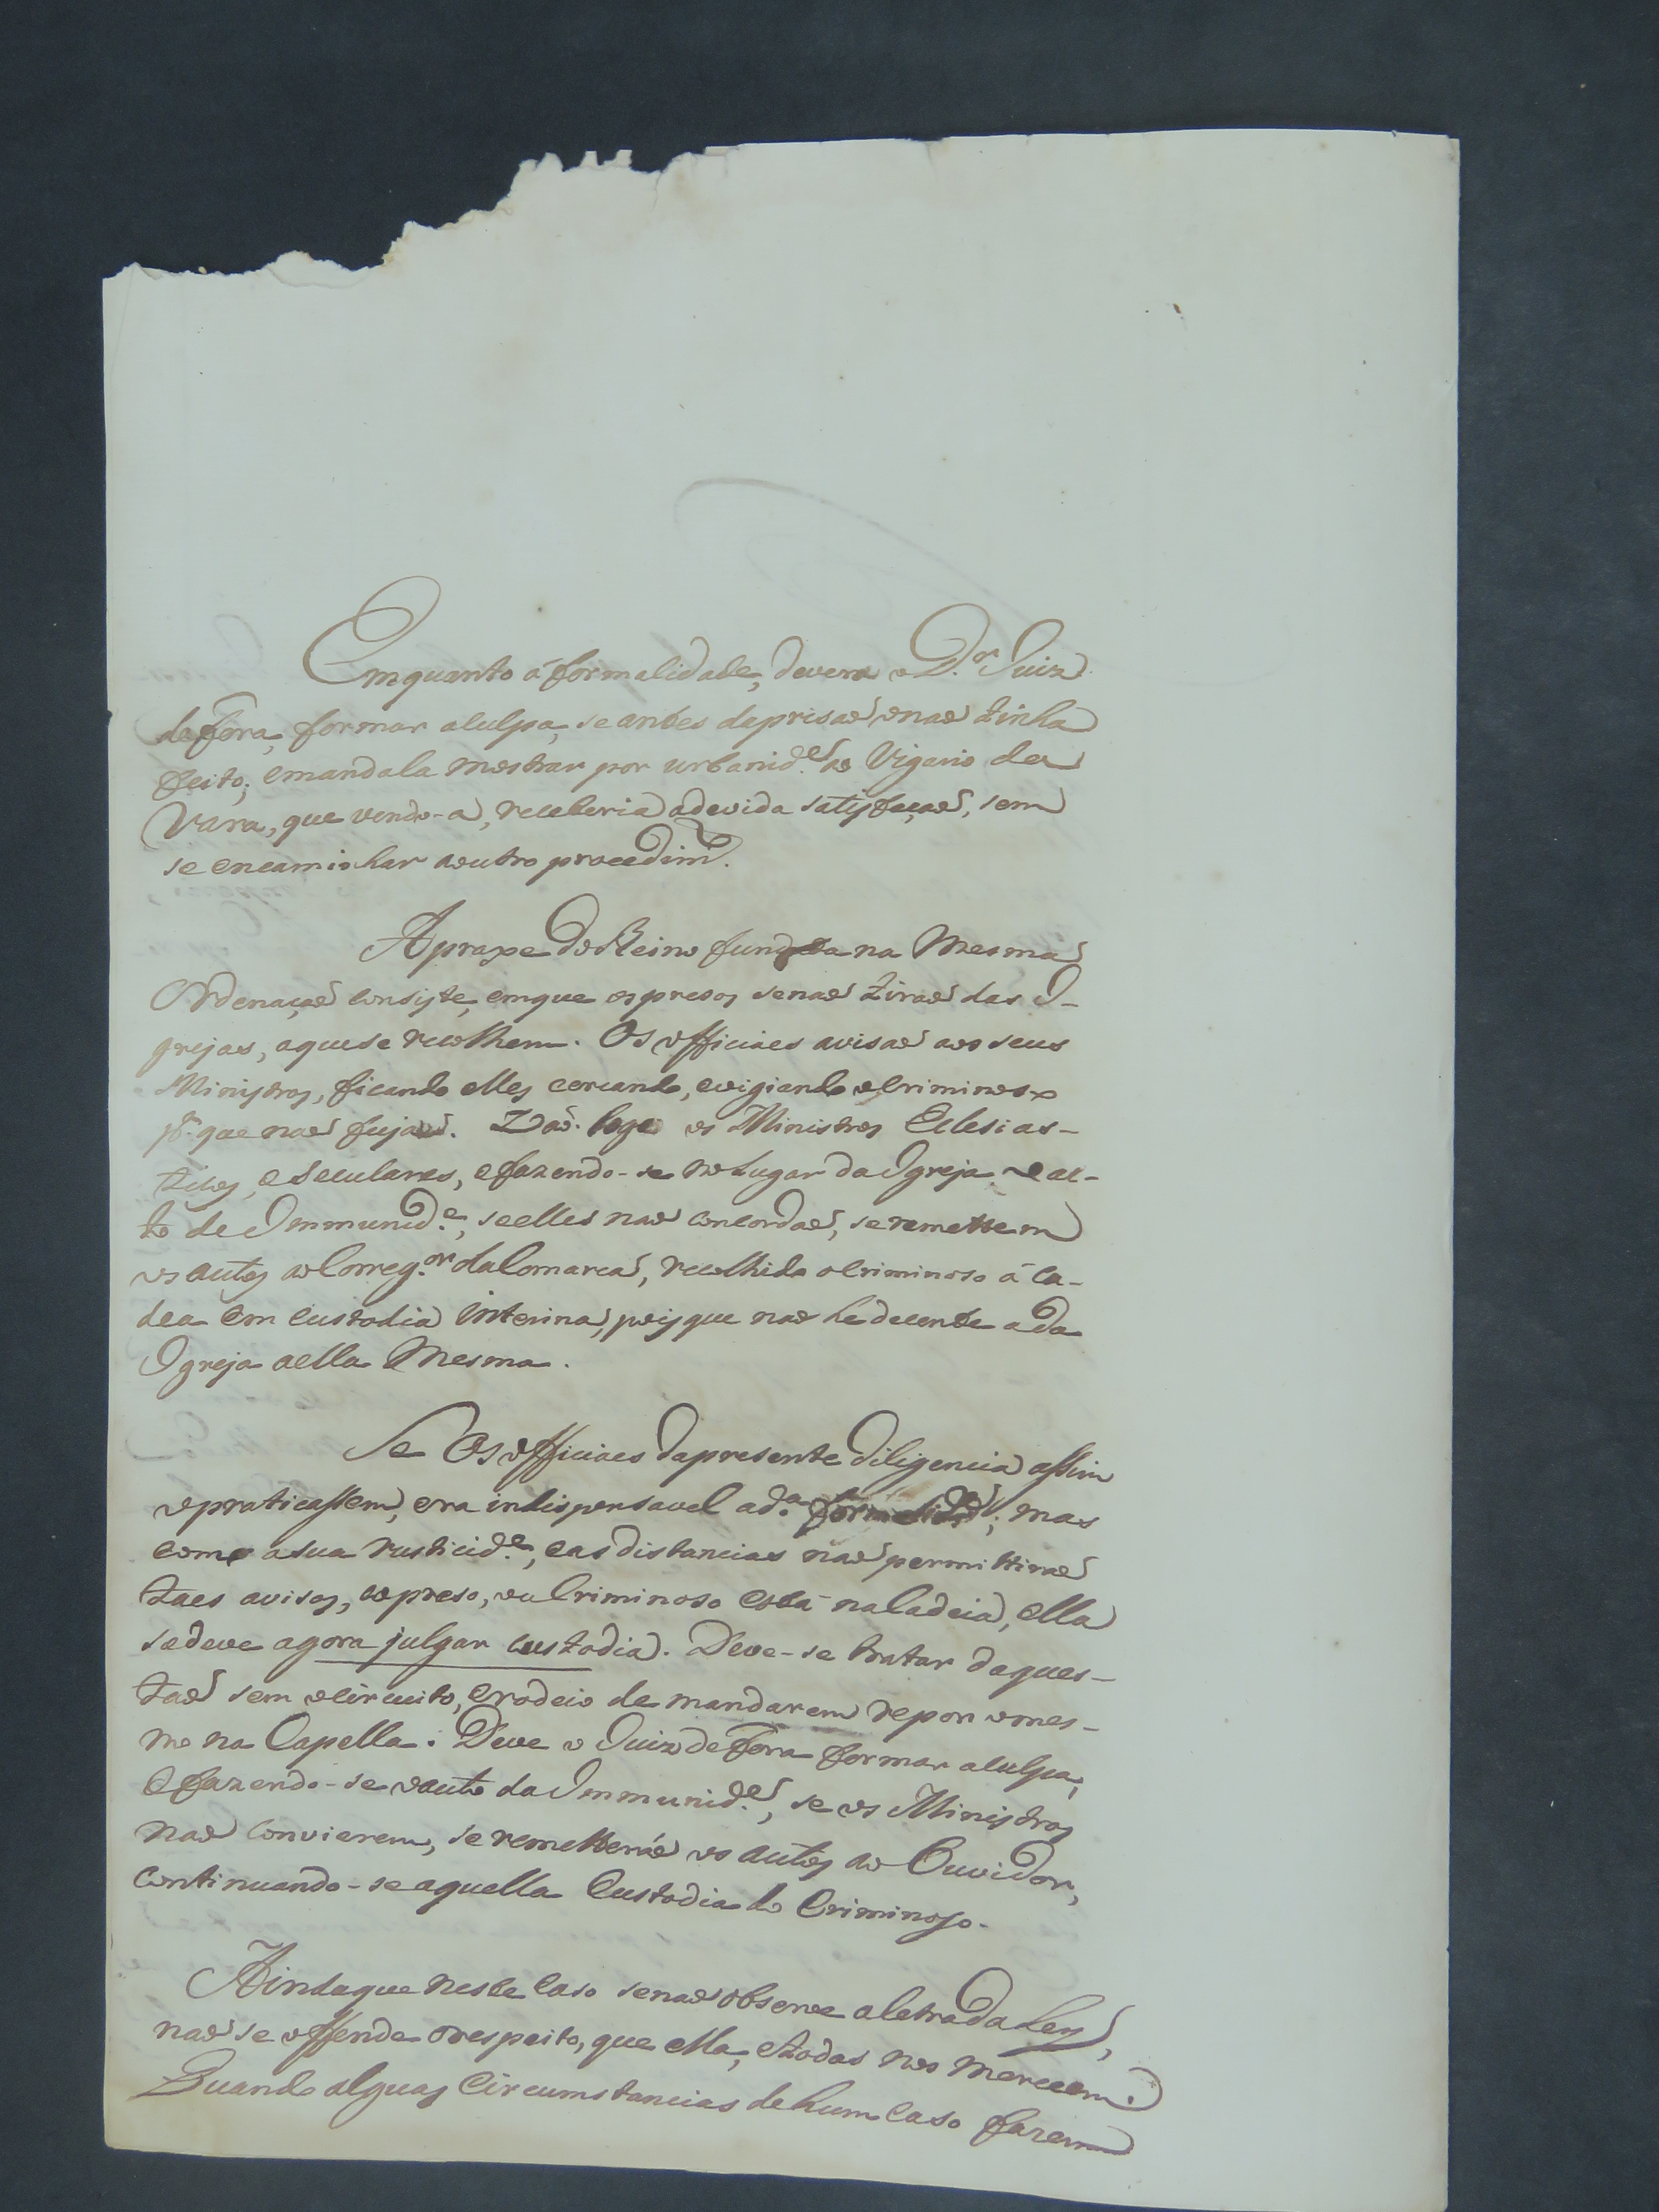 Emquanto á formalidade, devera o D.or Juiz
de fora, formar a culpa, se antes da prisaõ o naõ tinha
feito; e mandala mostrar por urbanid.e ao Vigario da
Vara, que vendo-a, receberia a devida satisfaçaõ, sem
se encaminhar a outro procedim.to
A praxe do Reino fundada na mesma
Ordenaçaõ consiste, em que os presos se naõ tiraõ das I-
grejas, a que se recolhem. Os officiaes avisaõ aos seus
Ministros, ficando elles cercando, e vigiando o Criminoso
p.a que naõ fuja. Vaõ logo os Ministros Eclesias-
ticos, e Seculares, e fazendo-se no Lugar da Igreja o au-
to de Immunid.e, se elles naõ concordaõ, se remettem
os autos ao Correg.or da Comarca, recolhido o criminoso á ca-
dea em custodia interina, pois que naõ he decente a da
Igreja a ella mesma.
Se os officiaes da presente diligencia assim
o praticassem, era indispensavel a d.a formalid.e; mas
como a sua rusticid.e, e as distancias naõ permittiraõ
taes avisos, e o preso, ou Criminoso está na Cadeia, ella
se deve agora julgar custodia. Deve-se tratar da ques-
taõ sem o circuito, e rodeio de mandarem repor o mes-
mo na Capella: Deve o Juiz de fora formar a culpa,
e fazendo-se o auto da Immunid.e, se os Ministros
naõ convierem, se remetteráõ os autos ao Ouvidor,
continuando-se aquella Custodia do Criminoso.
Ainda que neste caso se naõ observe a letra da Ley,
naõ se offende o respeito, que ella, e todas nos merecem.
Quando alguas Circumstancias de hum caso fazem